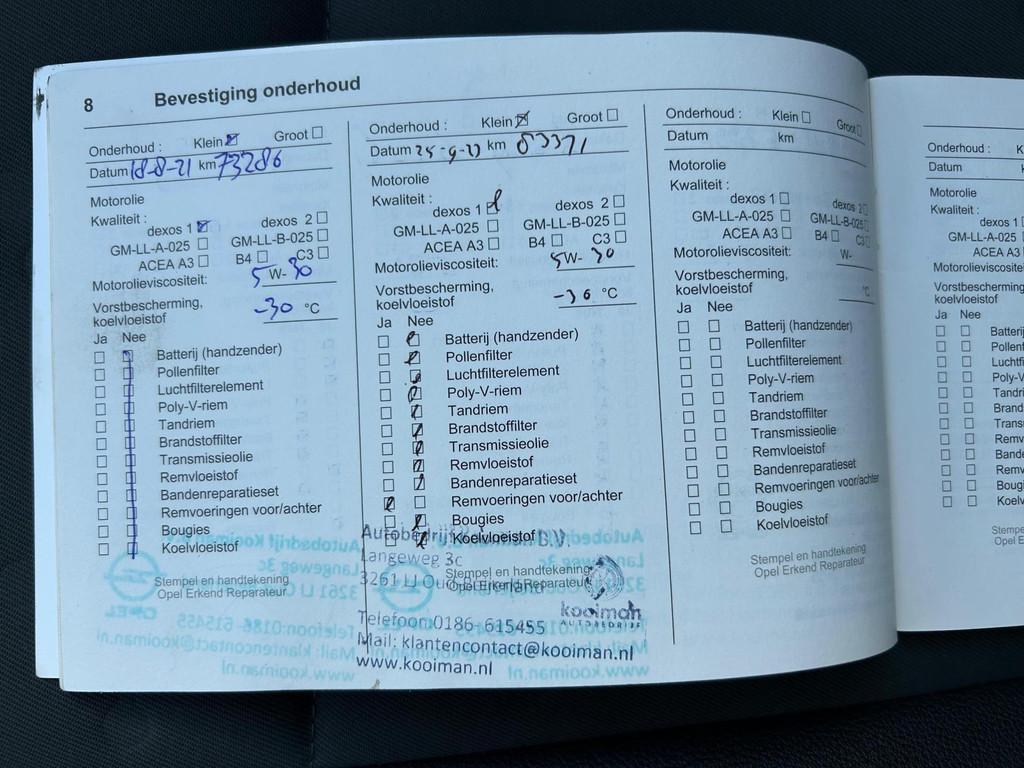 8 Bevestiging onderhoud
Onderhoud : Klein Groot
Datum 18-8-21 km 73286
Motorolie
Kwaliteit :
dexos 1 dexos 2
GM-LL-A-025 GM-LL-B-025
ACEA A3 B4 C3
Motorolieviscositeit: 5 W- 30
Vorstbescherming,
koelvloeistof -30 °C
Ja Nee
Batterij (handzender)
Pollenfilter
Luchtfilterelement
Poly-V-riem
Tandriem
Brandstoffilter
Transmissieolie
Remvloeistof
Bandenreparatieset
Remvoeringen voor/achter
Bougies
Koelvloeistof
Stempel en handtekening
Opel Erkend Reparateur
Onderhoud : Klein Groot
Datum km 83371
Motorolie
Kwaliteit :
dexos 1 dexos 2
GM-LL-A-025 GM-LL-B-025
ACEA A3 B4 C3
Motorolieviscositeit: 5W- 30
Vorstbescherming,
koelvloeistof -30 °C
Ja Nee
Batterij (handzender)
Pollenfilter
Luchtfilterelement
Poly-V-riem
Tandriem
Brandstoffilter
Transmissieolie
Remvloeistof
Bandenreparatieset
Remvoeringen voor/achter
Bougies
Koelvloeistof
Stempel en handtekening
Opel Erkend Reparateur
Autobedrijf B.V.
Langeweg 3c
3261 LJ
kooiman
AUTOBEDRIJF
Telefoon:0186-615455
Mail: klantencontact@kooiman.nl
www.kooiman.nl
Onderhoud : Klein Groot
Datum km
Motorolie
Kwaliteit :
dexos 1 dexos 2
GM-LL-A-025 GM-LL-B-025
ACEA A3 B4 C3
Motorolieviscositeit: W-
Vorstbescherming,
koelvloeistof °C
Ja Nee
Batterij (handzender)
Pollenfilter
Luchtfilterelement
Poly-V-riem
Tandriem
Brandstoffilter
Transmissieolie
Remvloeistof
Bandenreparatieset
Remvoeringen voor/achter
Bougies
Koelvloeistof
Stempel en handtekening
Opel Erkend Reparateur
Onderhoud : K
Datum
Motorolie
Kwaliteit :
dexos 1
GM-LL-A-025
ACEA A3
Motorolieviscosite
Vorstbescherming
koelvloeistof
Ja Nee
Batteri
Pollenf
Luchtfi
Poly-V
Tandri
Brands
Trans
Remv
Bande
Remv
Bougi
Koelv
Stempel e
Opel Erke